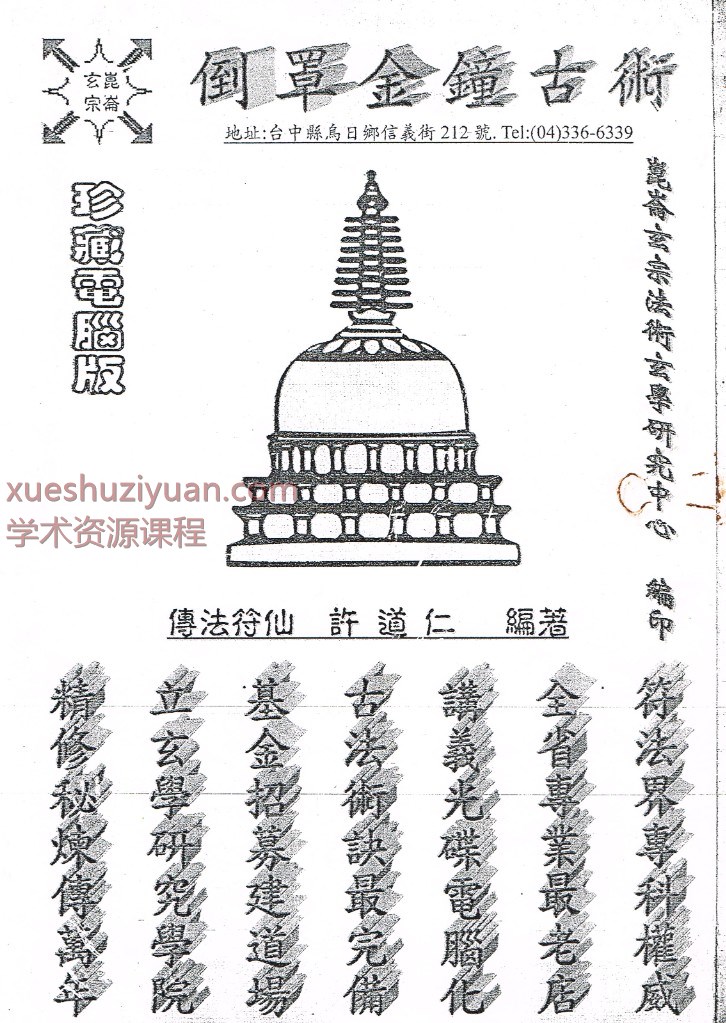 崑崙
玄宗
倒罩金鐘古術
地址:台中縣烏日鄉信義街 212 號. Tel:(04)336-6339
崑崙玄宗法術玄學研究中心 編印
珍藏電腦版
xueshuziyuan.com
学术资源课程
傳法符仙 許道仁 編著
符法界專科權威
全省專業最老店
講義光碟電腦化
古法術訣最完備
基金招募建道場
立玄學研究學院
精修秘煉傳萬年